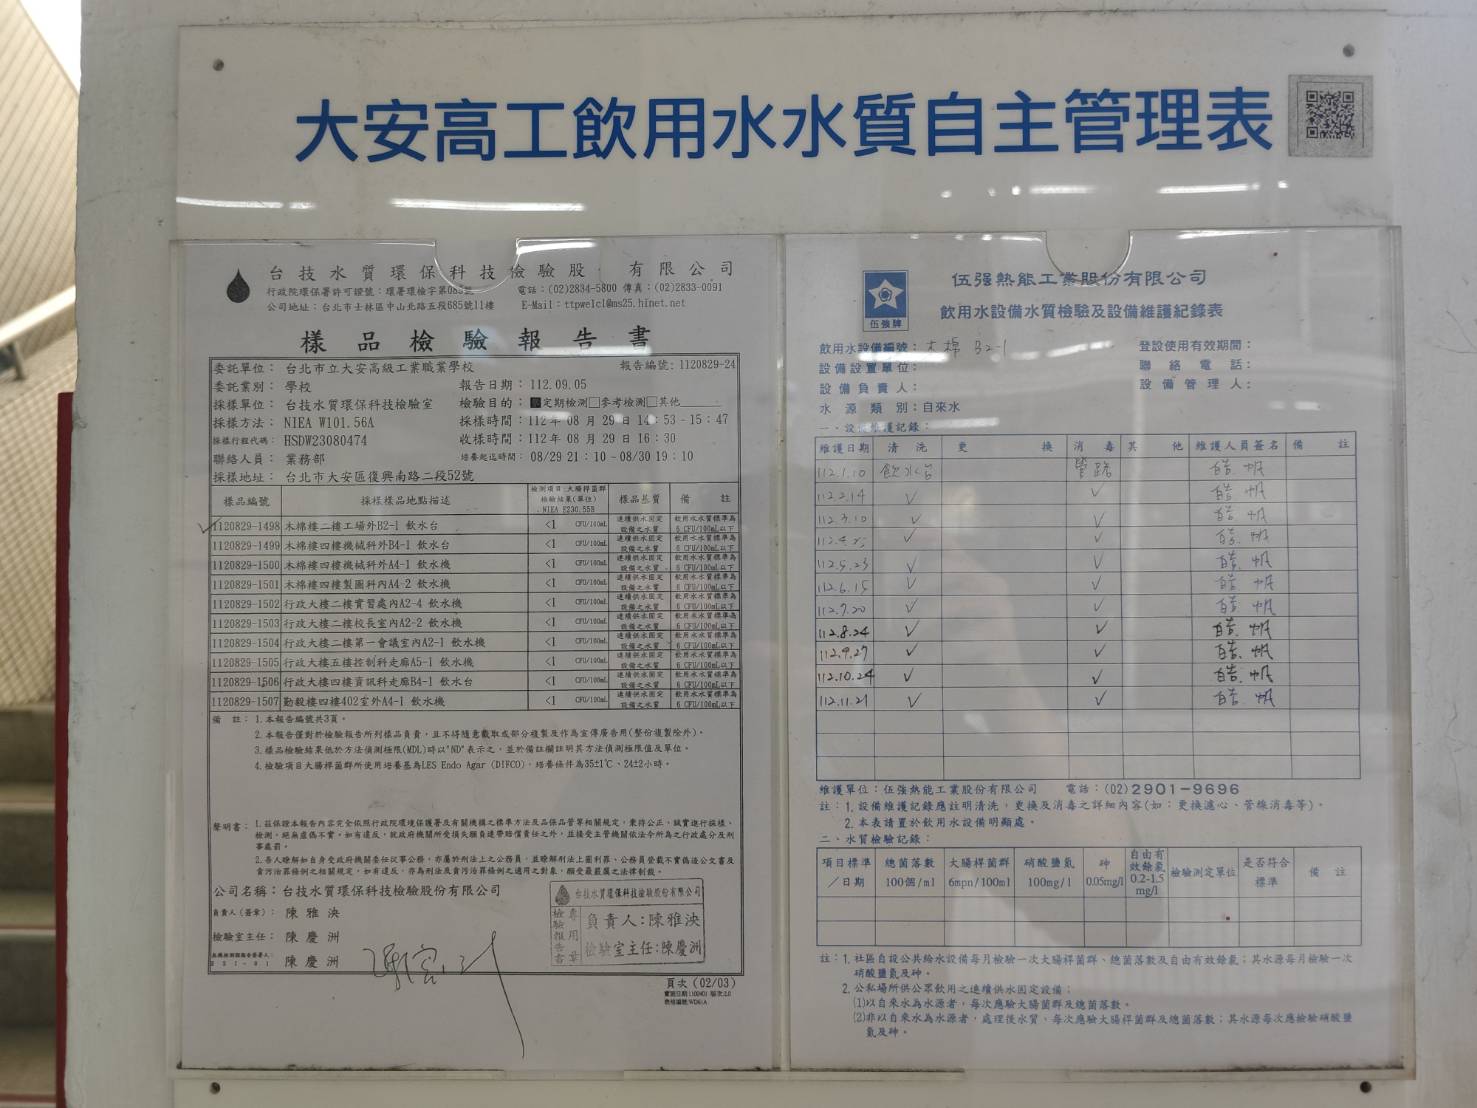 大安高工飲用水水質自主管理表
台技水質環保科技檢驗股 有限公司
行政院環保署許可證號：環署環檢字第085號 電話：(02)2834-5800 傳真：(02)2833-0091
公司地址：台北市士林區中山北路五段685號11樓 E-Mail：ttpwelcl@ms25.hinet.net
樣品檢驗報告書
委託單位： 台北市立大安高級工業職業學校 報告編號: 1120829-24
委託業別： 學校 報告日期：112.09.05
採樣單位： 台技水質環保科技檢驗室 檢驗目的：■定期檢測□參考檢測□其他
採樣方法： NIEA W101.56A 採樣時間：112年 08月 29日 14：53-15：47
採樣行程代碼： HSDW23080474 收樣時間：112年 08月 29日 16：30
聯絡人員： 業務部 培養起迄時間： 08/29 21：10-08/30 19：10
採樣地址： 台北市大安區復興南路二段52號
樣品編號 採樣樣品地點描述 檢測項目:大腸桿菌群 檢驗結果(單位) NIEA E230.55B 樣品基質 備 註
1120829-1498 木棉樓二樓工場外B2-1 飲水台 <1 CFU/100mL 連續供水固定設備之水質 飲用水水質標準為 6 CFU/100mL以下
1120829-1499 木棉樓四樓機械科外B4-1 飲水台 <1 CFU/100mL 連續供水固定設備之水質 飲用水水質標準為 6 CFU/100mL以下
1120829-1500 木棉樓四樓機械科外A4-1 飲水機 <1 CFU/100mL 連續供水固定設備之水質 飲用水水質標準為 6 CFU/100mL以下
1120829-1501 木棉樓四樓製圖科內A4-2 飲水機 <1 CFU/100mL 連續供水固定設備之水質 飲用水水質標準為 6 CFU/100mL以下
1120829-1502 行政大樓二樓實習處內A2-4 飲水機 <1 CFU/100mL 連續供水固定設備之水質 飲用水水質標準為 6 CFU/100mL以下
1120829-1503 行政大樓二樓校長室內A2-2 飲水機 <1 CFU/100mL 連續供水固定設備之水質 飲用水水質標準為 6 CFU/100mL以下
1120829-1504 行政大樓二樓第一會議室內A2-1 飲水機 <1 CFU/100mL 連續供水固定設備之水質 飲用水水質標準為 6 CFU/100mL以下
1120829-1505 行政大樓五樓控制科走廊A5-1 飲水機 <1 CFU/100mL 連續供水固定設備之水質 飲用水水質標準為 6 CFU/100mL以下
1120829-1506 行政大樓四樓資訊科走廊B4-1 飲水台 <1 CFU/100mL 連續供水固定設備之水質 飲用水水質標準為 6 CFU/100mL以下
1120829-1507 勤毅樓四樓402室外A4-1 飲水機 <1 CFU/100mL 連續供水固定設備之水質 飲用水水質標準為 6 CFU/100mL以下
備 註：1.本報告編號共3頁。
2.本報告僅對於檢驗報告所列樣品負責，且不得隨意截取或部分複製及作為宣傳廣告用(整份複製除外)。
3.樣品檢驗結果低於方法偵測極限(MDL)時以"ND"表示之，並於備註欄註明其方法偵測極限值及單位。
4.檢驗項目大腸桿菌群所使用培養基為LES Endo Agar (DIFCO)，培養條件為35±1℃、24±2小時。
聲明書：1.茲保證本報告內容完全依照行政院環境保護署及有關機構之標準方法及品保品管等相關規定，秉持公正、誠實進行採樣、
檢測。絕無虛偽不實。如有違反，就政府機關所受損失願負連帶賠償責任之外，並接受主管機關依法令所為之行政處分及刑
事處罰。
2.吾人瞭解如自身受政府機關委任從事公務，亦屬於刑法上之公務員，並瞭解刑法上圖利罪、公務員登載不實偽造公文書及
貪污治罪條例之相關規定，如有違反，亦為刑法及貪污治罪條例之適用之對象，願受最嚴厲之法律制裁。
公司名稱：台技水質環保科技檢驗股份有限公司
負責人(簽章)： 陳雅泱
檢驗室主任： 陳慶洲
陳慶洲
台技水質環保科技檢驗股份有限公司
檢驗報告書 專用章
負責人:陳雅泱
檢驗室主任:陳慶洲
頁次(02/03)
伍強牌
伍强熱能工業股份有限公司
飲用水設備水質檢驗及設備維護紀錄表
飲用水設備編號：木棉 B2-1 登設使用有效期間：
設備設置單位： 聯絡電話：
設備負責人： 設備管理人：
水源類別：自來水
一、設備維護記錄：
維護日期 清洗 更換 消毒 其他 維護人員簽名 備註
112.1.10 飲水台 管路
112.2.14 ✓ ✓
112.3.10 ✓ ✓
112.4.25 ✓ ✓
112.5.23 ✓ ✓
112.6.15 ✓ ✓
112.7.20 ✓ ✓
112.8.24 ✓ ✓
112.9.27 ✓ ✓
112.10.24 ✓ ✓
112.11.21 ✓ ✓
維護單位：伍強熱能工業股份有限公司 電話：(02)2901-9696
註：1.設備維護記錄應註明清洗、更換及消毒之詳細內容(如：更換濾心、管線消毒等)。
2.本表請置於飲用水設備明顯處。
二、水質檢驗記錄：
項目標準／日期 總菌落數 100個/ml 大腸桿菌群 6mpn/100ml 硝酸鹽氮 100mg/l 砷 0.05mg/l 自由有效餘氯 0.2-1.5 mg/l 檢驗測定單位 是否符合標準 備註
註：1.社區自設公共給水設備每月檢驗一次大腸桿菌群、總菌落數及自由有效餘氯；其水源每月檢驗一次
硝酸鹽氮及砷。
2.公私場所供公眾飲用之連續供水固定設備：
(1)以自來水為水源者，每次應驗大腸菌群及總菌落數。
(2)非以自來水為水源者，處理後水質，每次應驗大腸桿菌群及總菌落數；其水源每次應檢驗硝酸鹽
氮及砷。